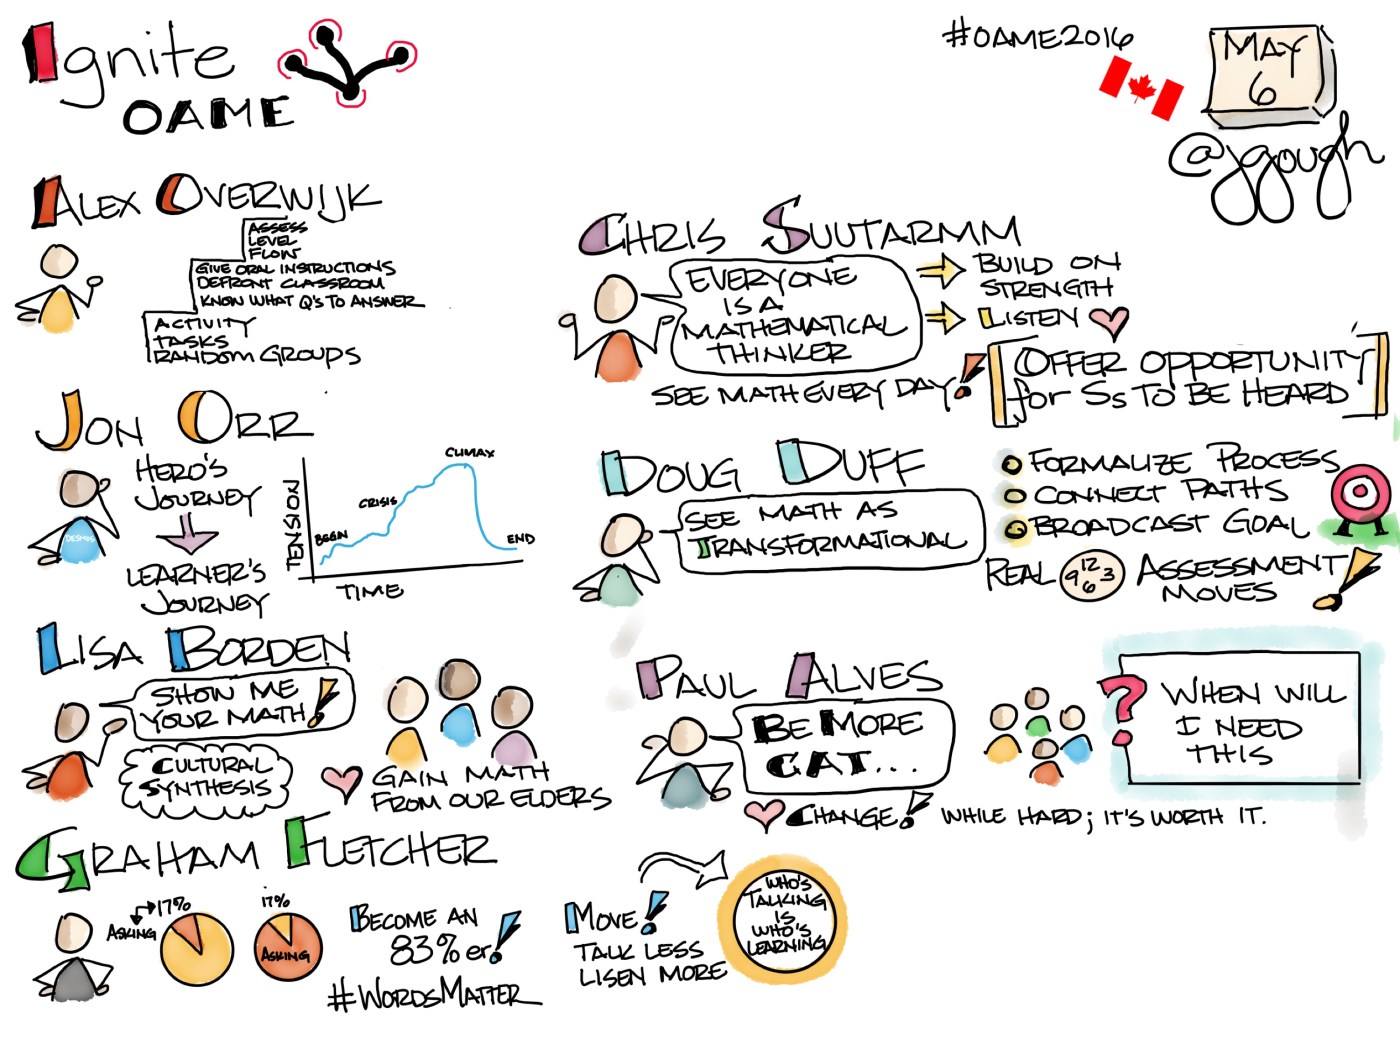 Ignite
OAME
#OAME2016
MAY
6
@jgough
ALEX OVERWIJK
ASSESS
LEVEL
FLOW
GIVE ORAL INSTRUCTIONS
DEFRONT CLASSROOM
KNOW WHAT Q'S TO ANSWER
ACTIVITY
TASKS
RANDOM GROUPS
JON ORR
HERO'S
JOURNEY
LEARNER'S
JOURNEY
DESMOS
TENSION
BEGIN
CRISIS
CLIMAX
END
TIME
LISA BORDEN
SHOW ME
YOUR MATH!
CULTURAL
SYNTHESIS
GAIN MATH
FROM OUR ELDERS
GRAHAM FLETCHER
17%
ASKING
17%
ASKING
BECOME AN
83% er!
#WORDSMATTER
MOVE!
TALK LESS
LISEN MORE
WHO'S
TALKING
IS
WHO'S
LEARNING
CHRIS SUUTARMM
EVERYONE
IS A
MATHEMATICAL
THINKER
SEE MATH EVERY DAY!
BUILD ON
STRENGTH
LISTEN
[OFFER OPPORTUNITY
for Ss TO BE HEARD]
DOUG DUFF
SEE MATH AS
TRANSFORMATIONAL
FORMALIZE PROCESS
CONNECT PATHS
BROADCAST GOAL
REAL
12
9 3
6
ASSESSMENT
MOVES!
PAUL ALVES
BE MORE
CAT...
CHANGE! WHILE HARD; IT'S WORTH IT.
?
WHEN WILL
I NEED
THIS